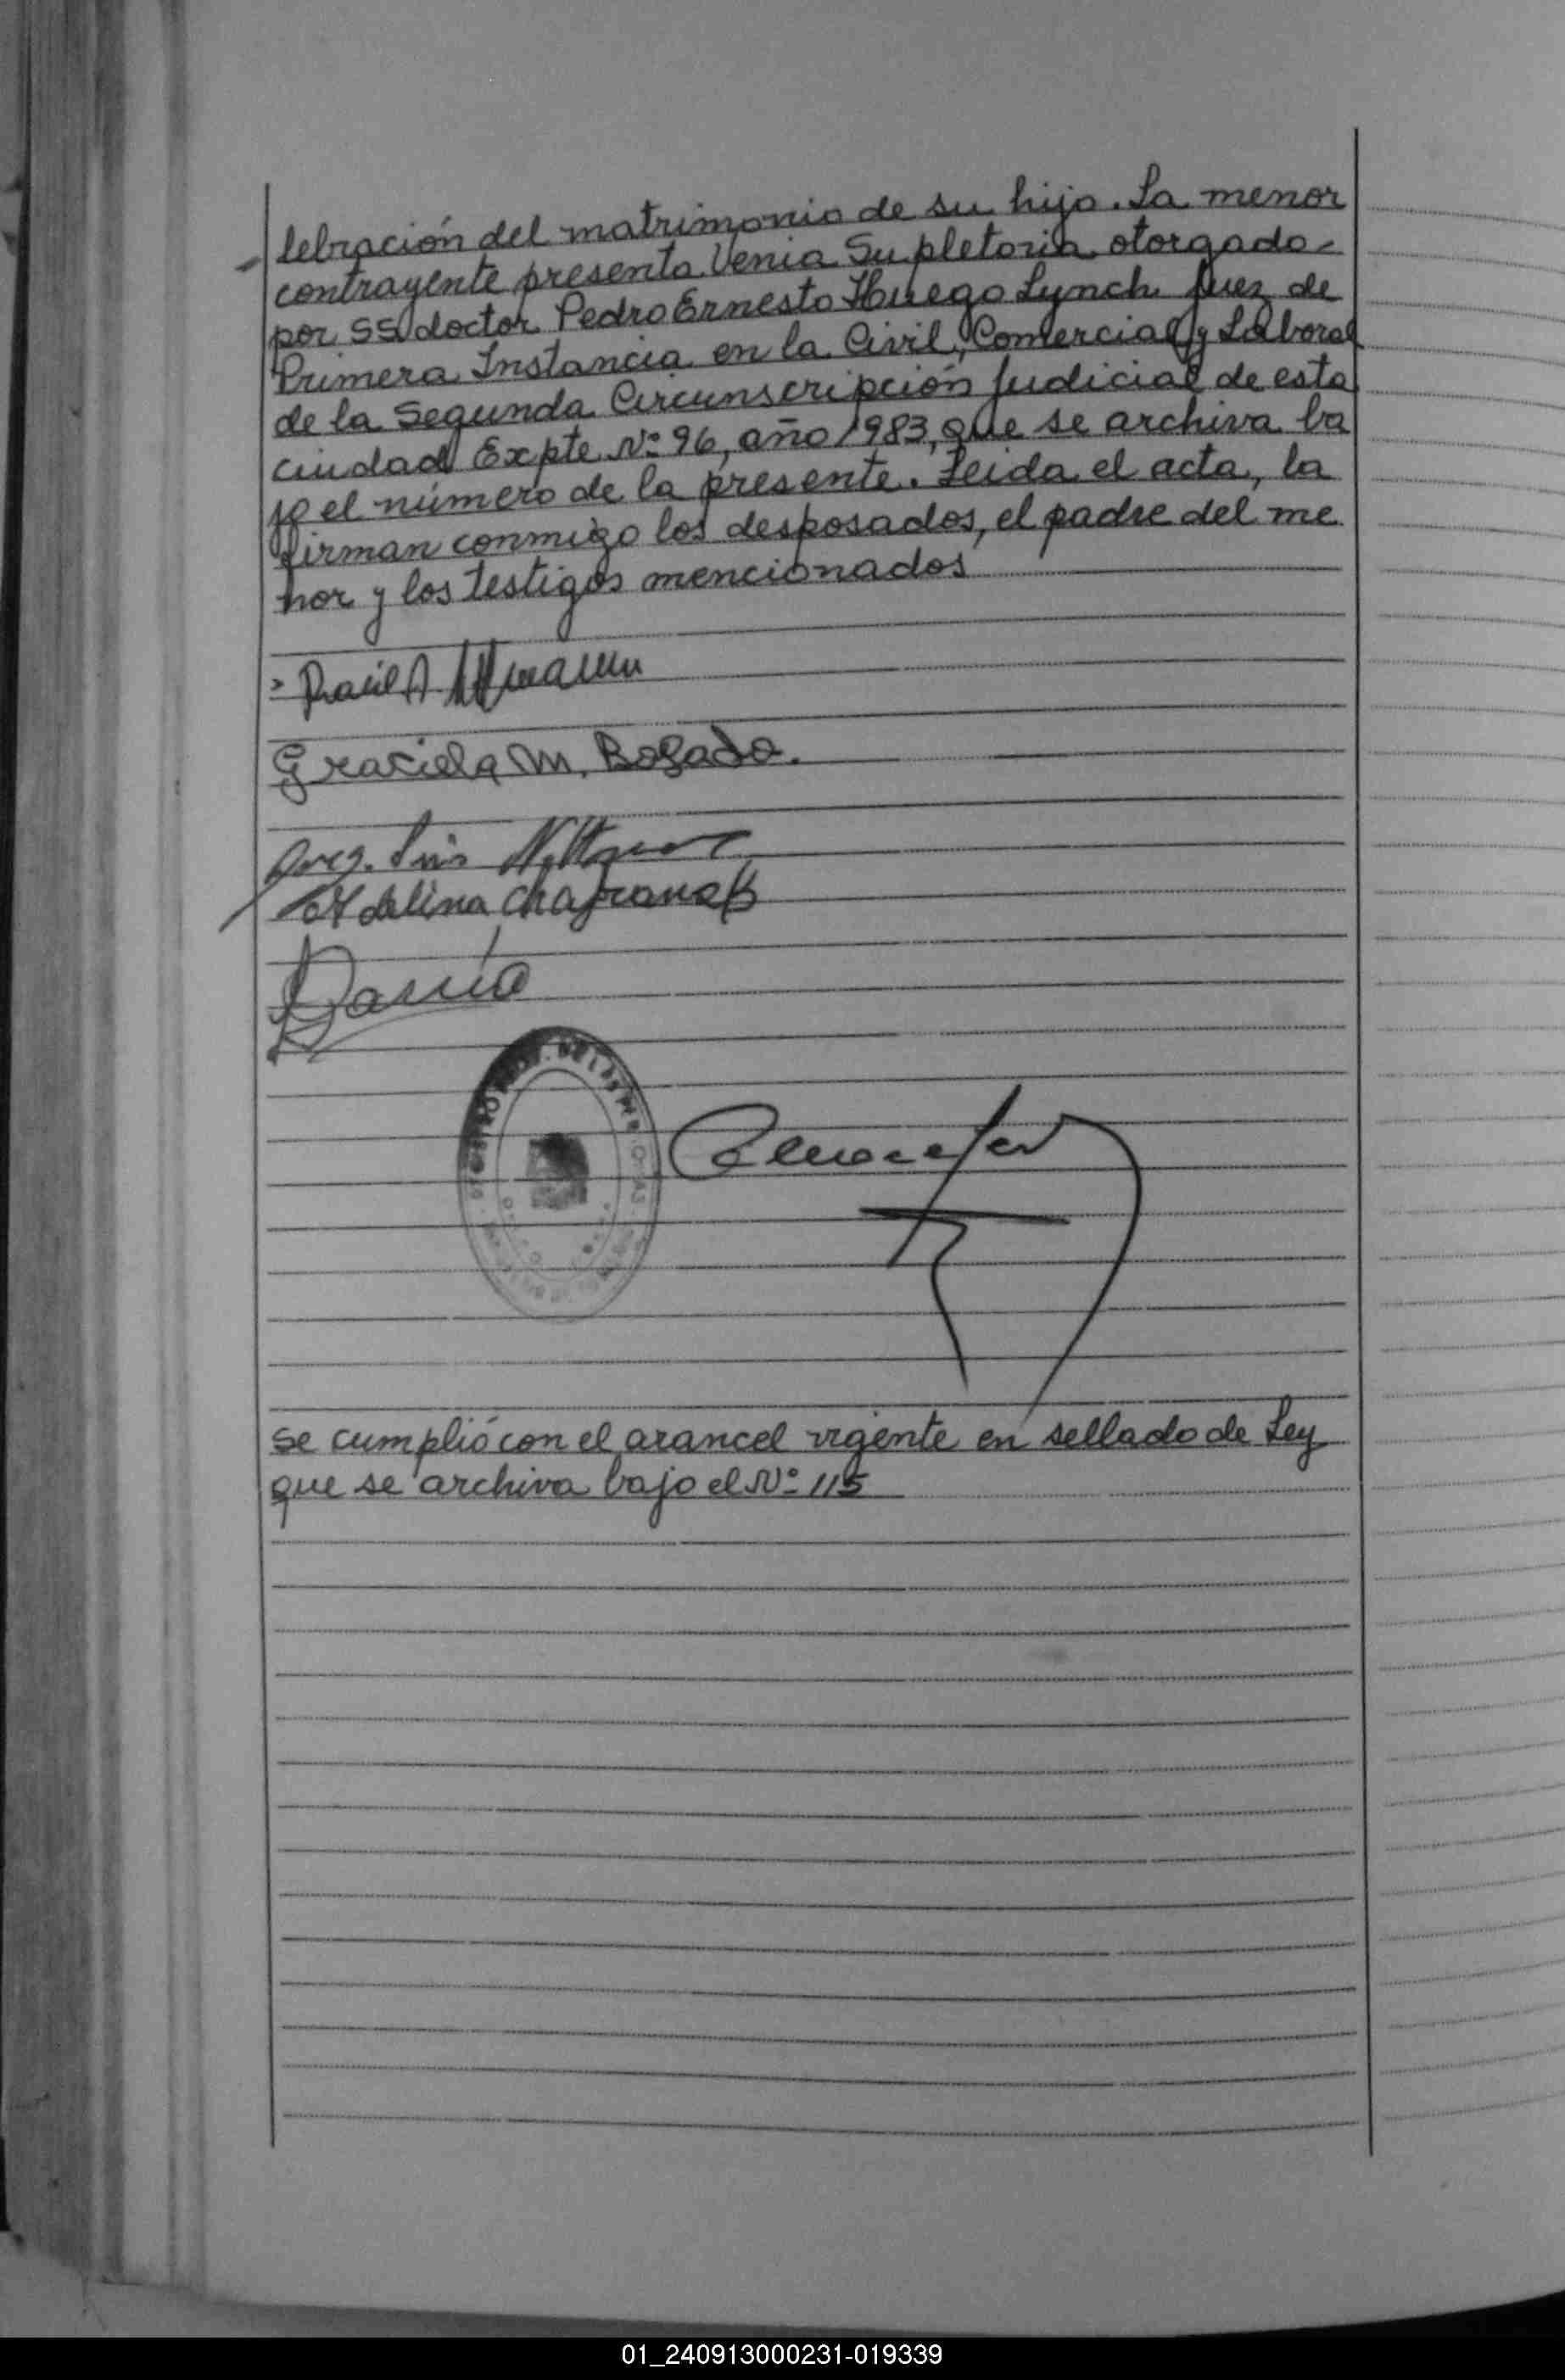 lebración del matrimonio de su hijo. La menor
contrayente presenta Venia Supletoria otorgado-
por SS doctor Pedro Ernesto Huego Lynch Juez de
Primera Instancia en la Civil, Comercial y Laboral
de la Segunda Circunscripción Judicial de esta
ciudad Expte Nº 96, año 1983, que se archiva ba
jo el número de la presente. Leida el acta, la
firman conmigo los desposados, el padre del me
nor y los testigos mencionados
Raúl A.
Graciela M. Bogado.
Luis
Adelina
se cumplió con el arancel vigente en sellado de Ley
que se archiva bajo el Nº 115
01_240913000231-019339